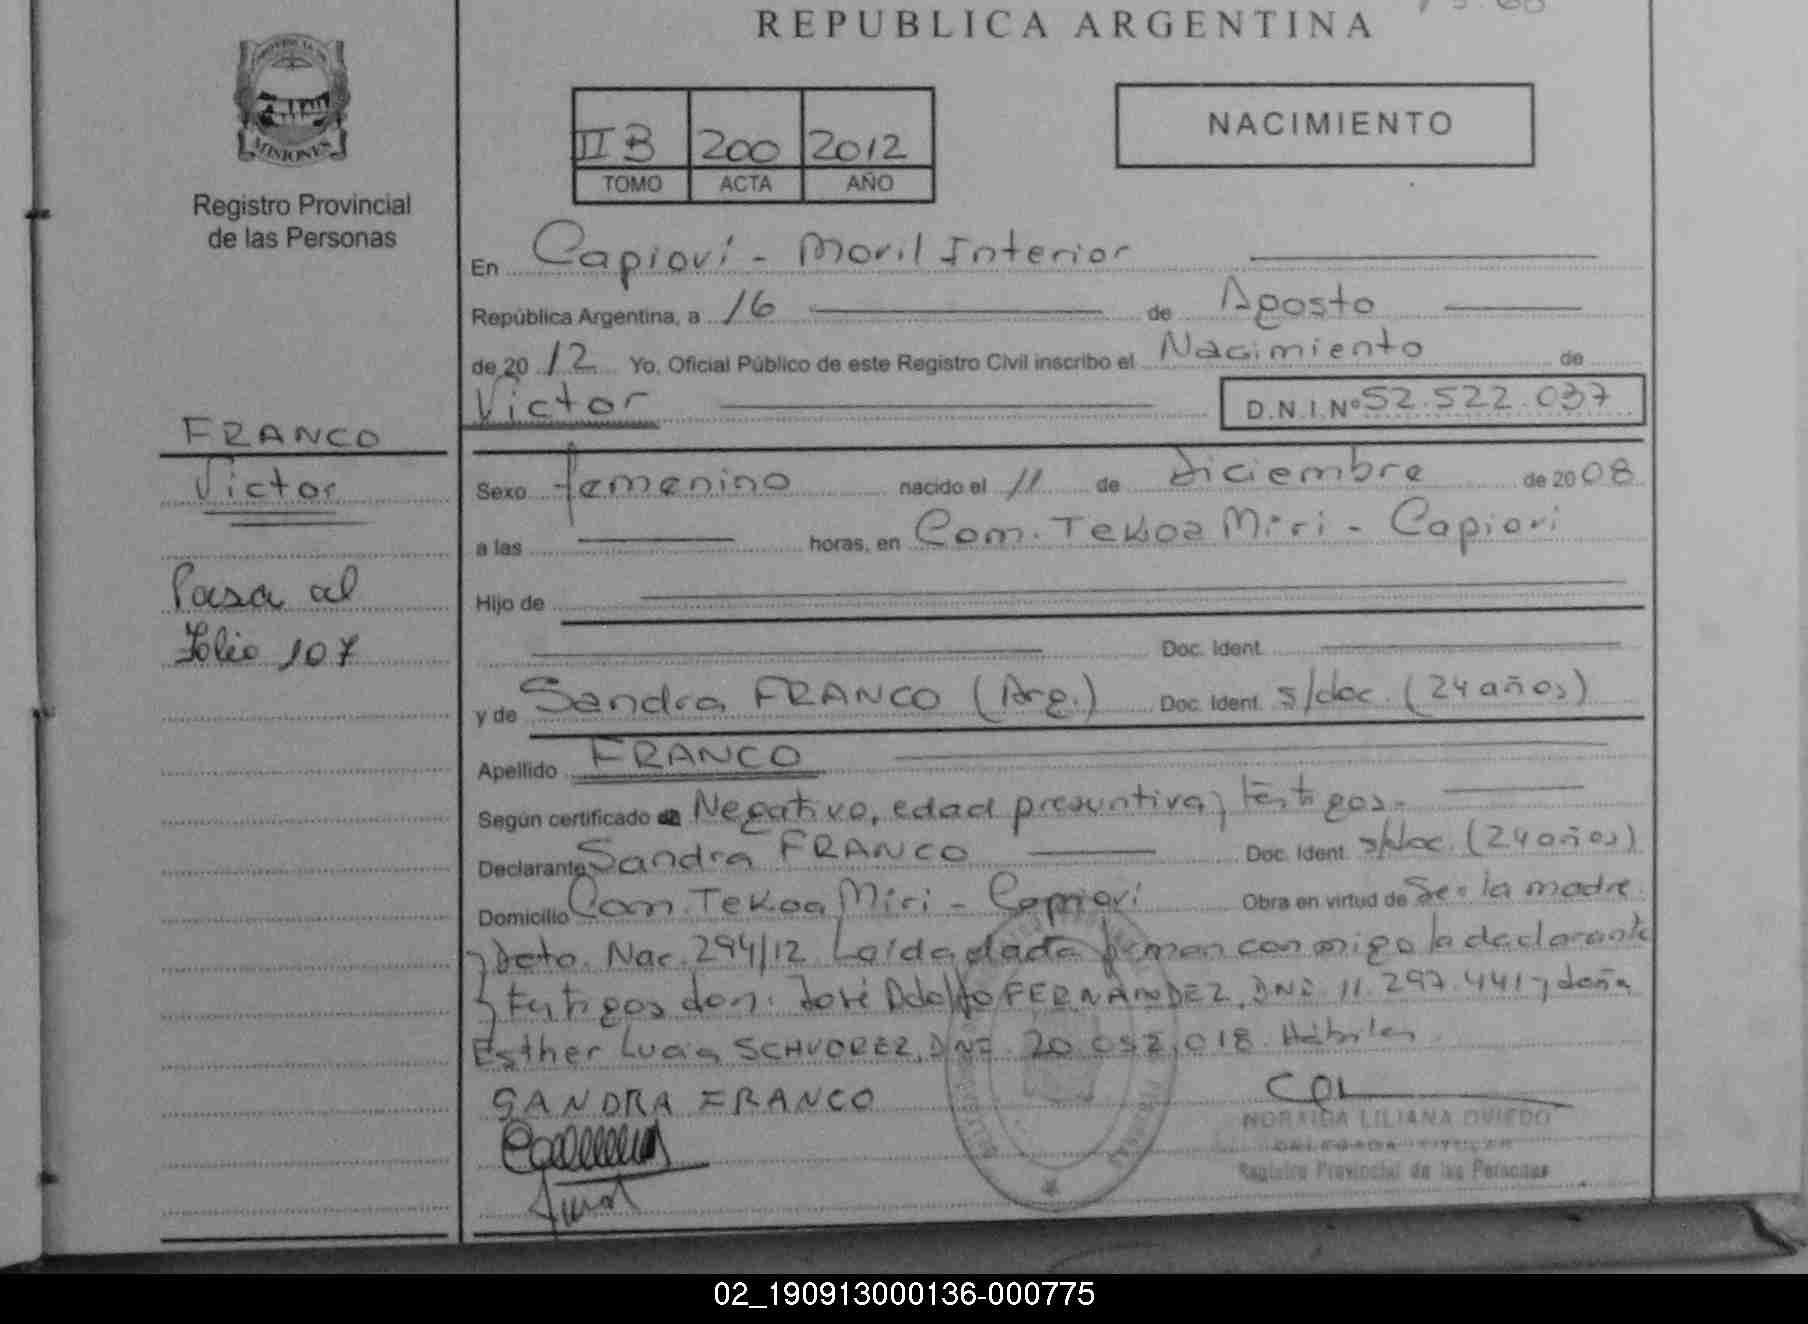 REPUBLICA ARGENTINA
PROVINCIA DE
MISIONES
Registro Provincial
de las Personas
II B 200 2012
TOMO ACTA AÑO
NACIMIENTO
En Capioví - Movil Interior
República Argentina, a 16 de Agosto
de 2012 Yo, Oficial Público de este Registro Civil inscribo el Nacimiento de
Victor D.N.I.Nº 52.522.037
FRANCO
Victor
Pasa al
Folio 107
Sexo femenino nacido el 11 de diciembre de 2008
a las horas, en Com. Tekoa Miri - Capiovi
Hijo de
Doc. Ident.
y de Sandra FRANCO (Arg.) Doc. Ident. s/doc. (24 años)
Apellido FRANCO
Según certificado de Negativo, edad presuntiva y testigos.
Declarante Sandra FRANCO Doc. Ident. s/doc. (24 años)
Domicilio Com. Tekoa Miri - Capioví Obra en virtud de Ser la madre
y Dcto. Nac. 294/12 Leída el acta firman conmigo la declarante
y testigos don: José Adolfo FERNANDEZ, DNI. 11.297.441 y doña
Esther Lucia SCHVOREZ, DNI. 20.052.018 Hábiles
SANDRA FRANCO
NORAIDA LILIANA OVIEDO
DELEGADA TITULAR
Registro Provincial de las Personas
02_190913000136-000775